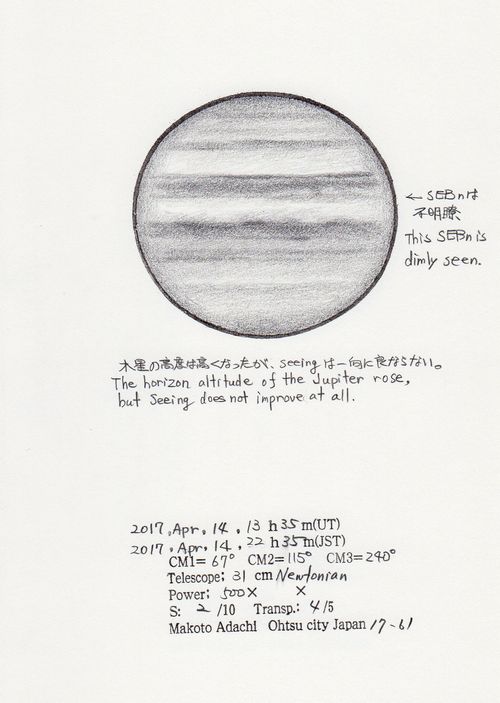 ← SEBnは
不明瞭
This SEBn is
dimly seen.
木星の高度は高くなったが、seeingは一向に良ならない。
The horizon altitude of the Jupiter rose,
but Seeing does not improve at all.
2017, Apr. 14, 13 h 35 m(UT)
2017, Apr. 14, 22 h 35 m(JST)
CM1= 67° CM2= 115° CM3= 240°
Telescope: 31 cm Newtonian
Power: 500× ×
S: 2 /10 Transp.: 4/5
Makoto Adachi Ohtsu city Japan 17-61